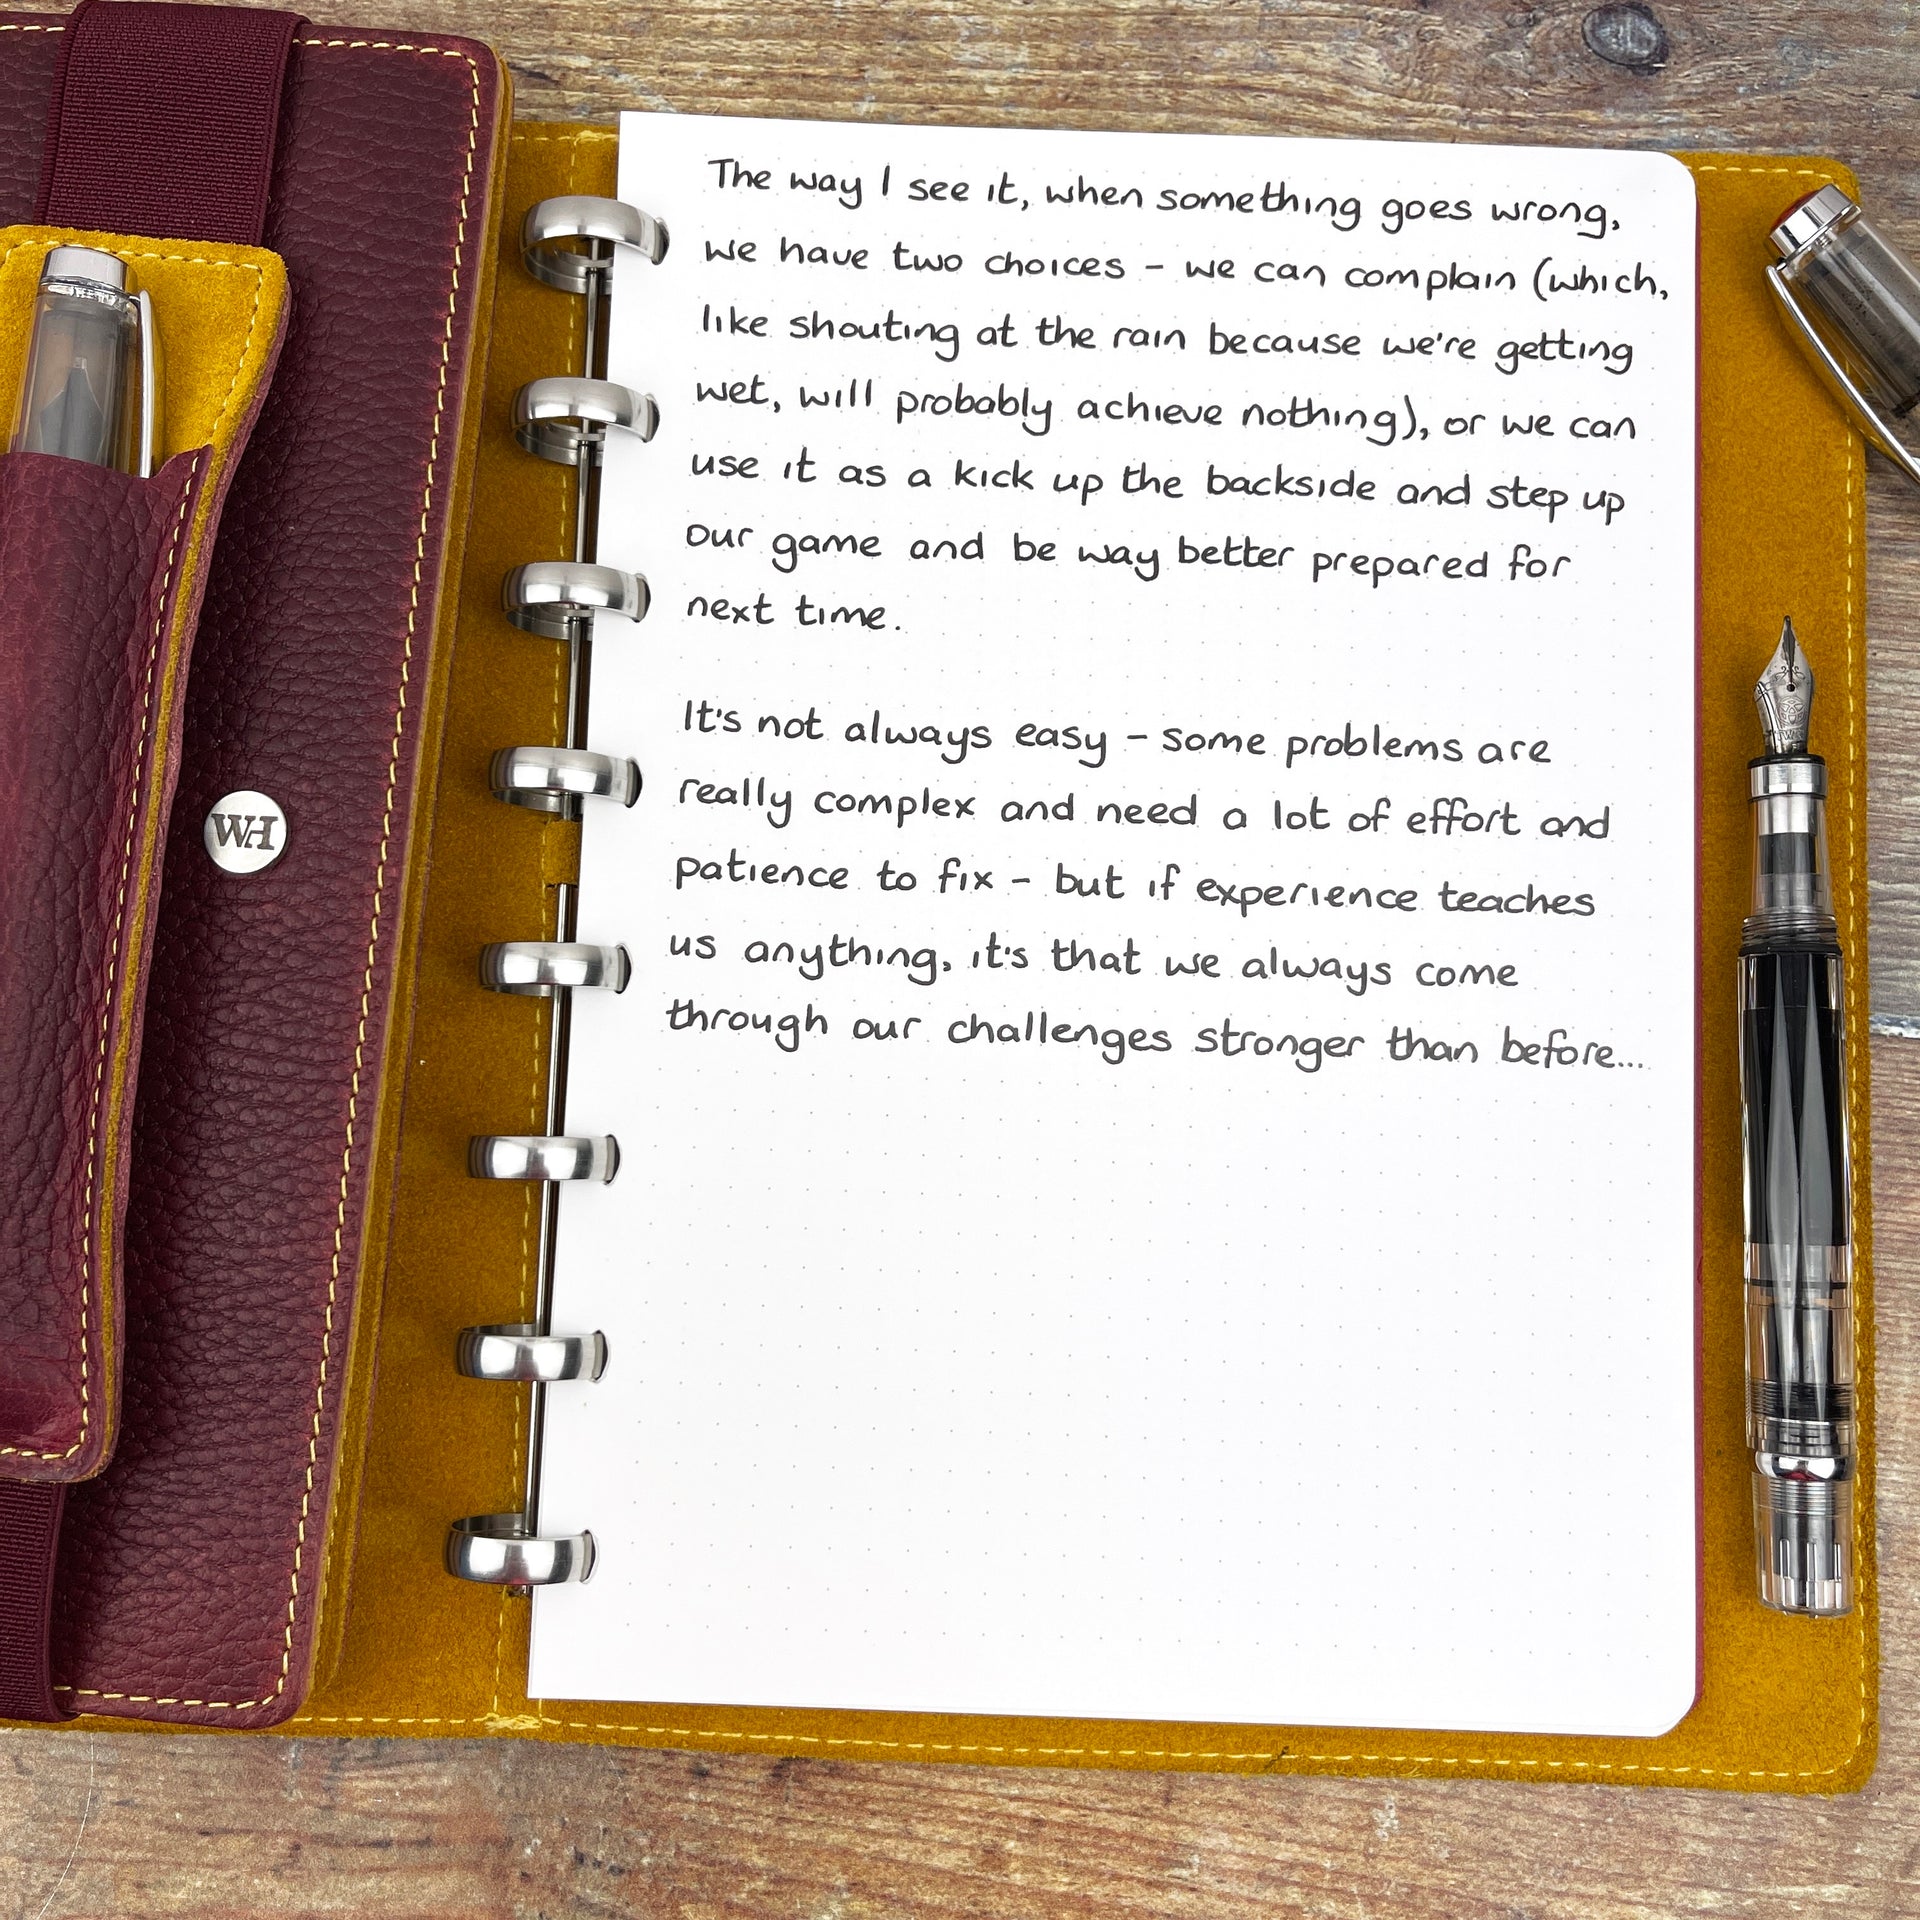 The way I see it, when something goes wrong,
we have two choices – we can complain (which,
like shouting at the rain because we're getting
wet, will probably achieve nothing), or we can
use it as a kick up the backside and step up
our game and be way better prepared for
next time.
It's not always easy – some problems are
really complex and need a lot of effort and
patience to fix – but if experience teaches
us anything, it's that we always come
through our challenges stronger than before...
WH